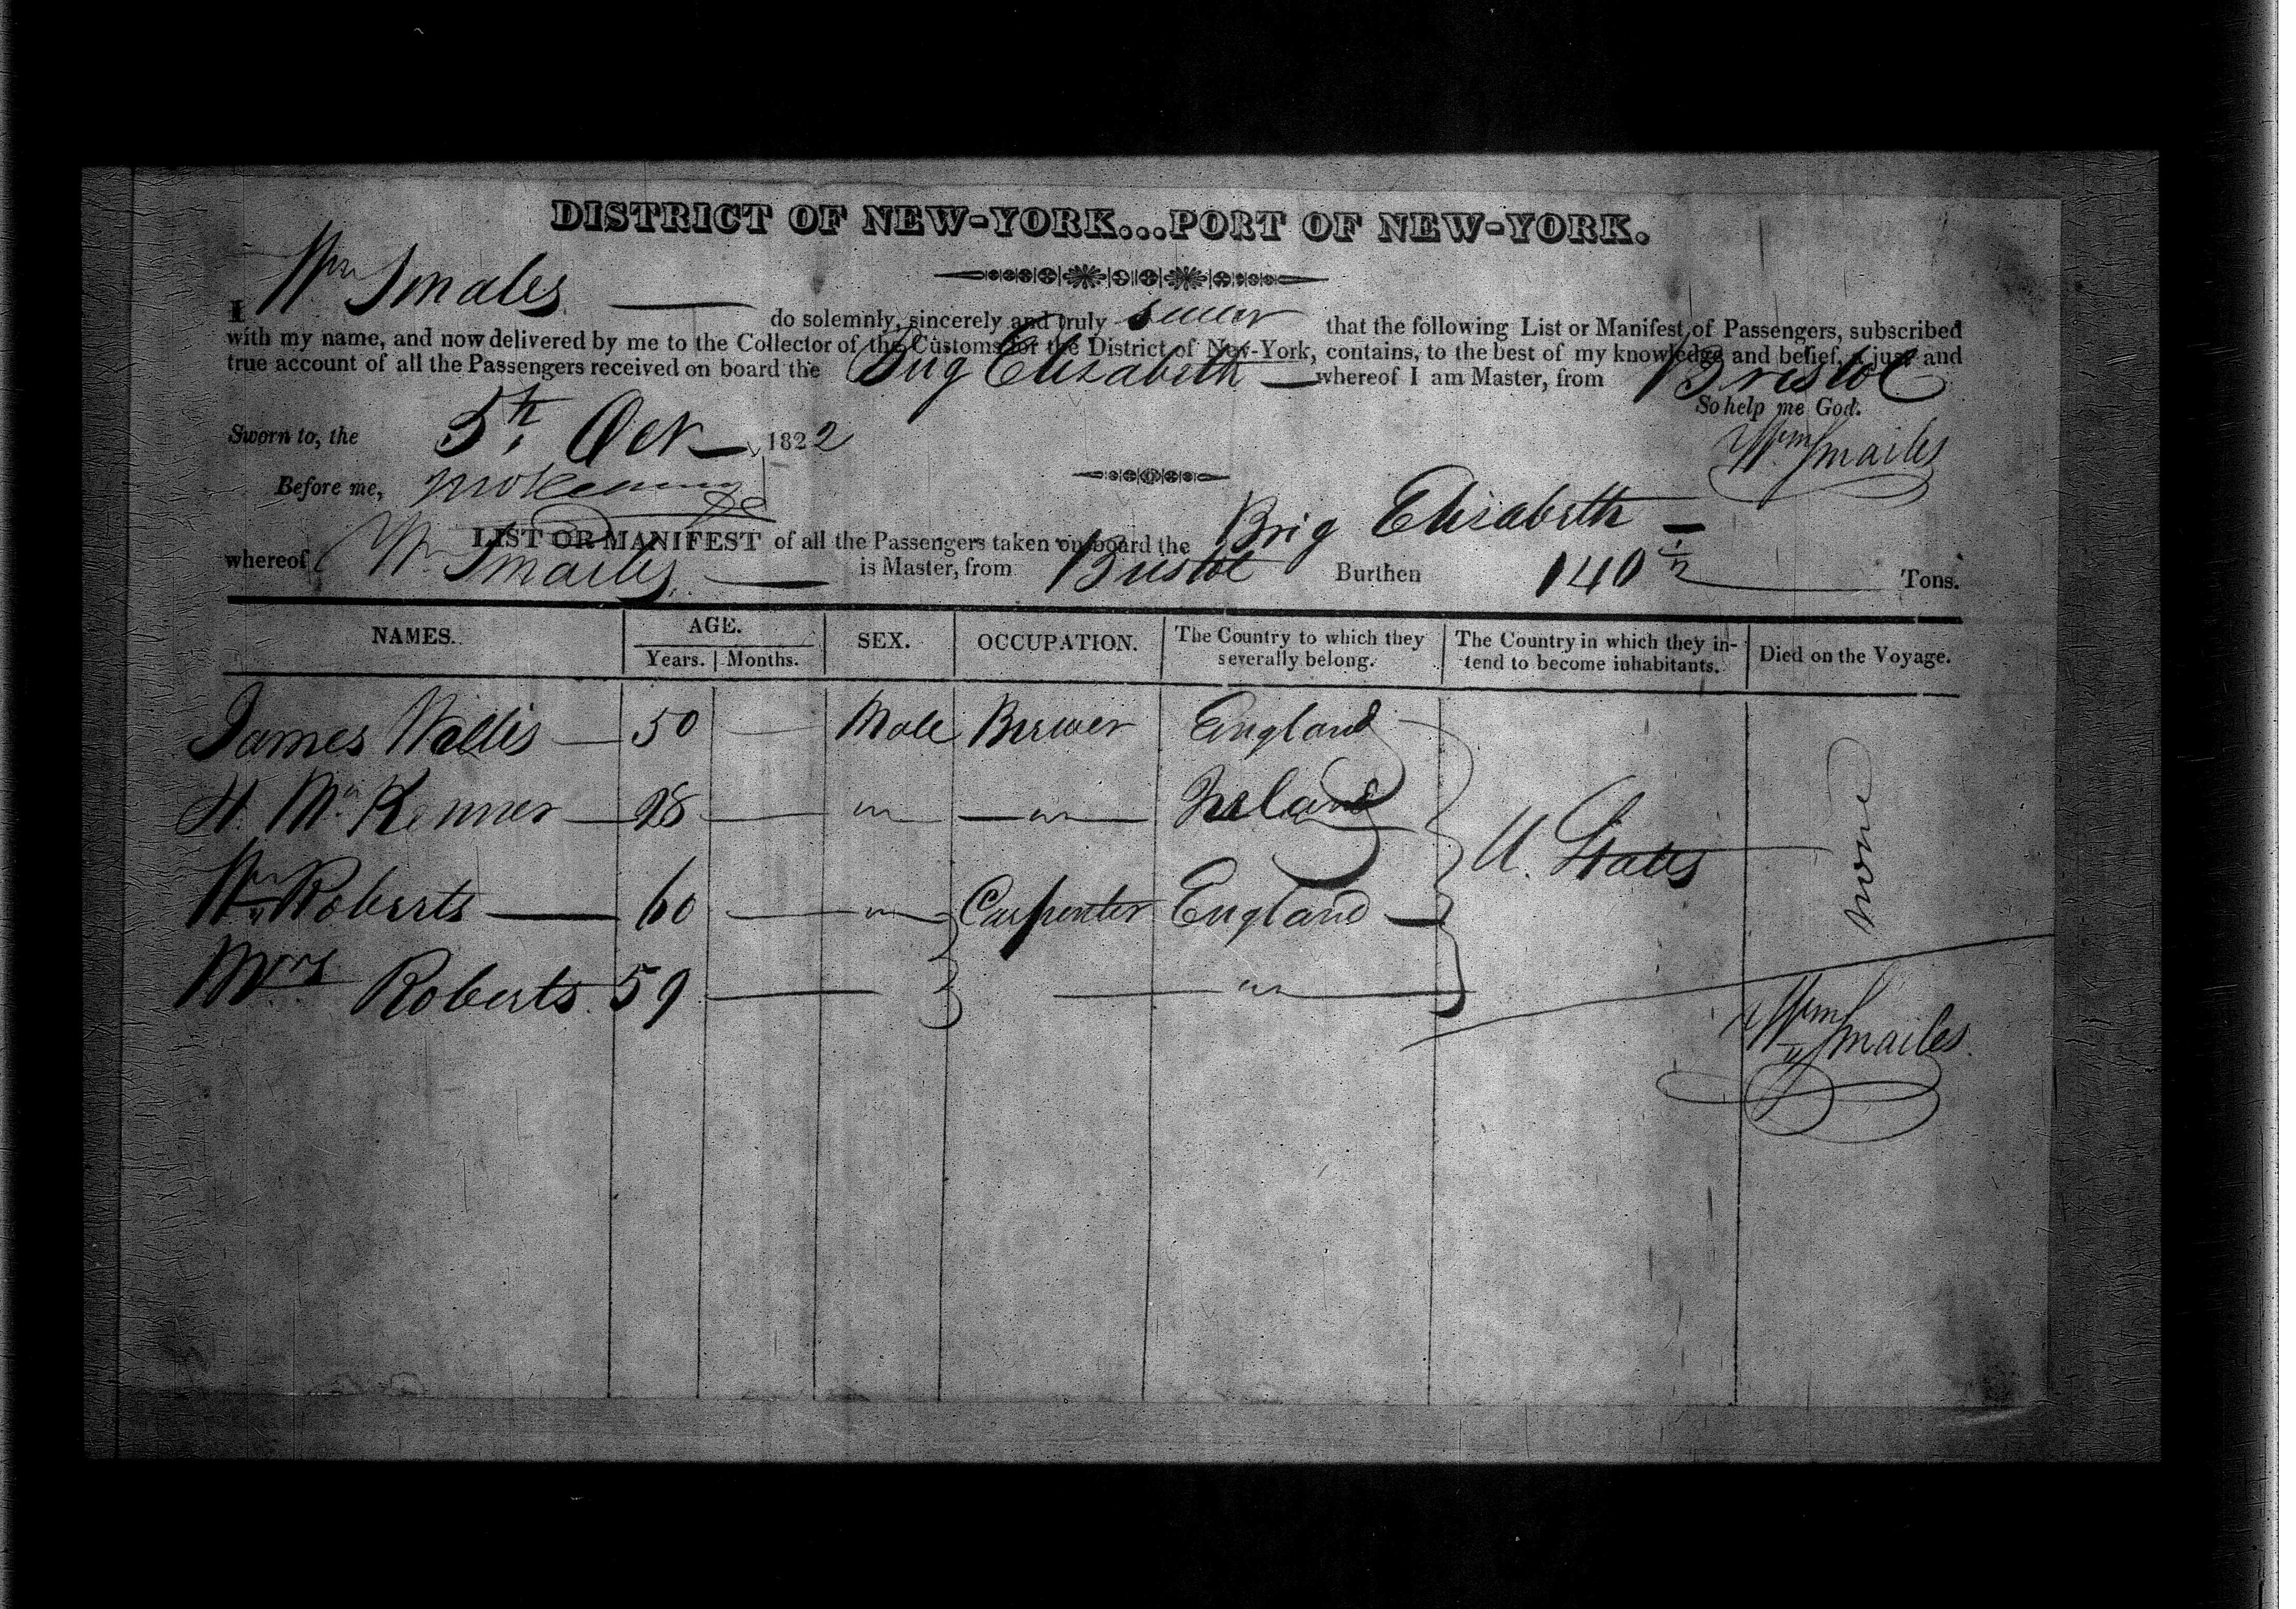 DISTRICT OF NEW-YORK...PORT OF NEW-YORK.
I Wm Smales do solemnly, sincerely and truly swear that the following List or Manifest of Passengers, subscribed
with my name, and now delivered by me to the Collector of the Customs for the District of New-York, contains, to the best of my knowledge and belief, a just and
true account of all the Passengers received on board the Brig Elizabeth whereof I am Master, from Bristol
So help me God.
Sworn to, the 5th Oct 1822
Wm Smailes
Before me,
LIST OR MANIFEST of all the Passengers taken on board the Brig Elisabeth
whereof Wm Smailes is Master, from Bristol Burthen 140 1/2 Tons.
NAMES. AGE. SEX. OCCUPATION. The Country to which they severally belong. The Country in which they intend to become inhabitants. Died on the Voyage.
Years. Months.
James Wallis 50 Male Brewer England
H. Mc Kenner 28 " " Ireland
U. States none
Wm Roberts 60 " Carpenter England
Mrs Roberts 59 "
Wm Smailes